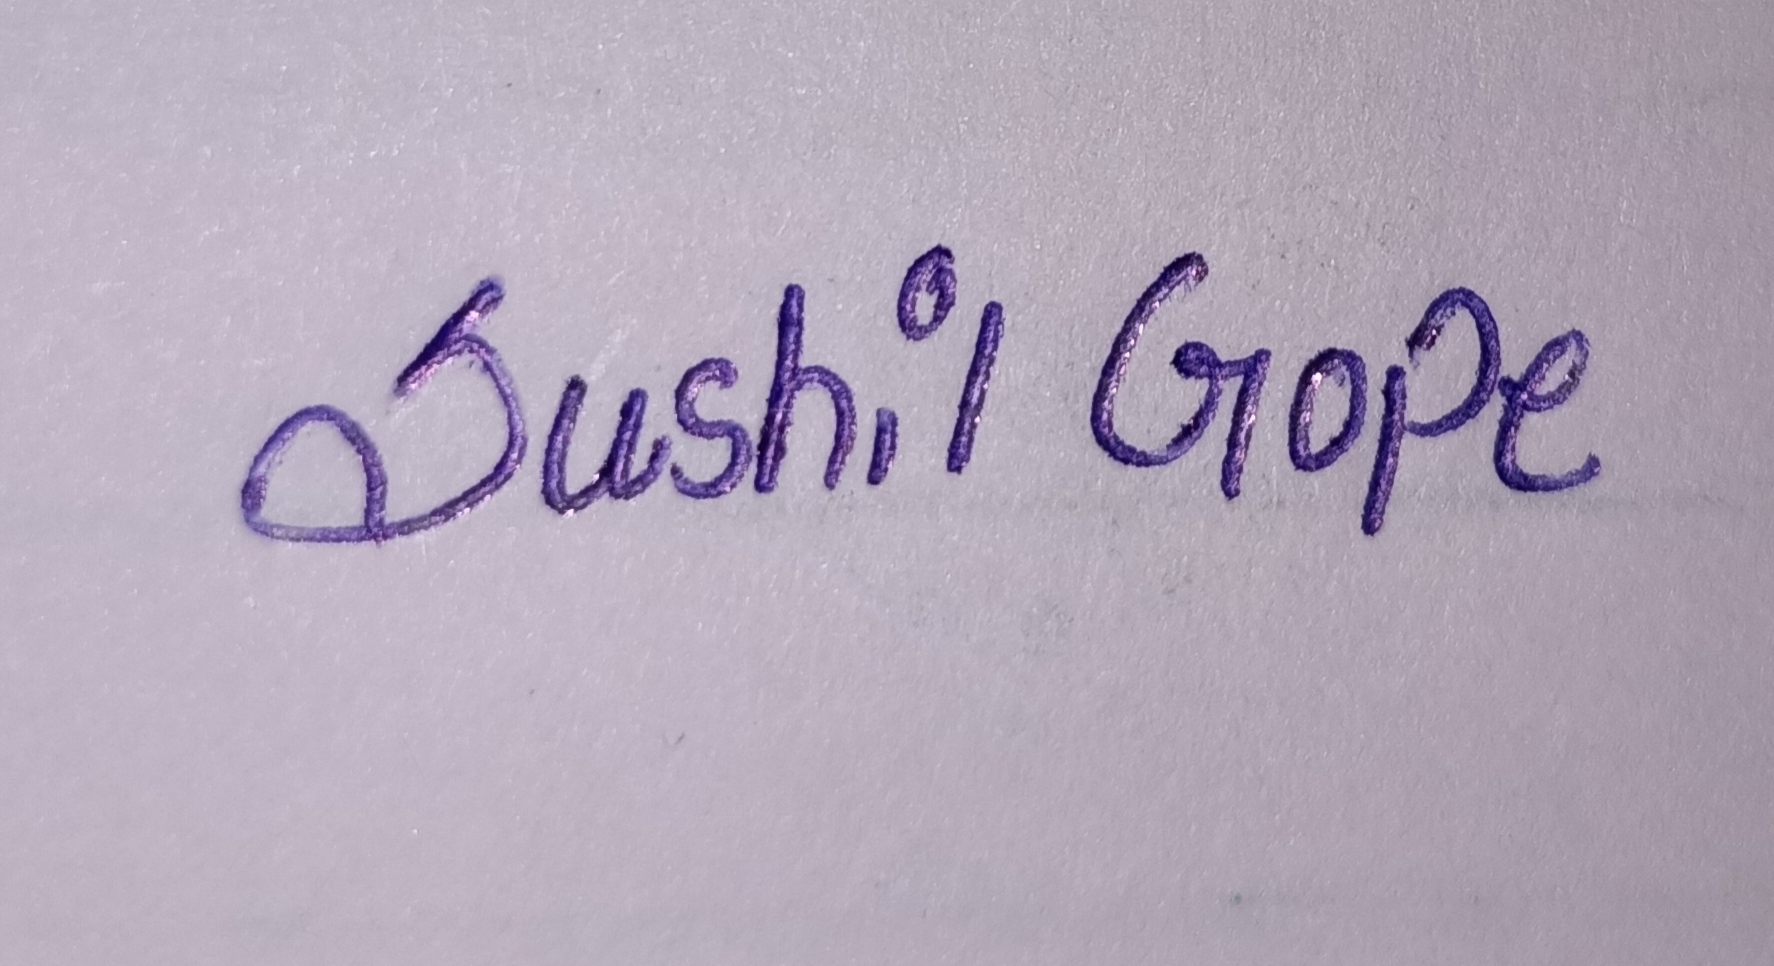 Sushil Gope